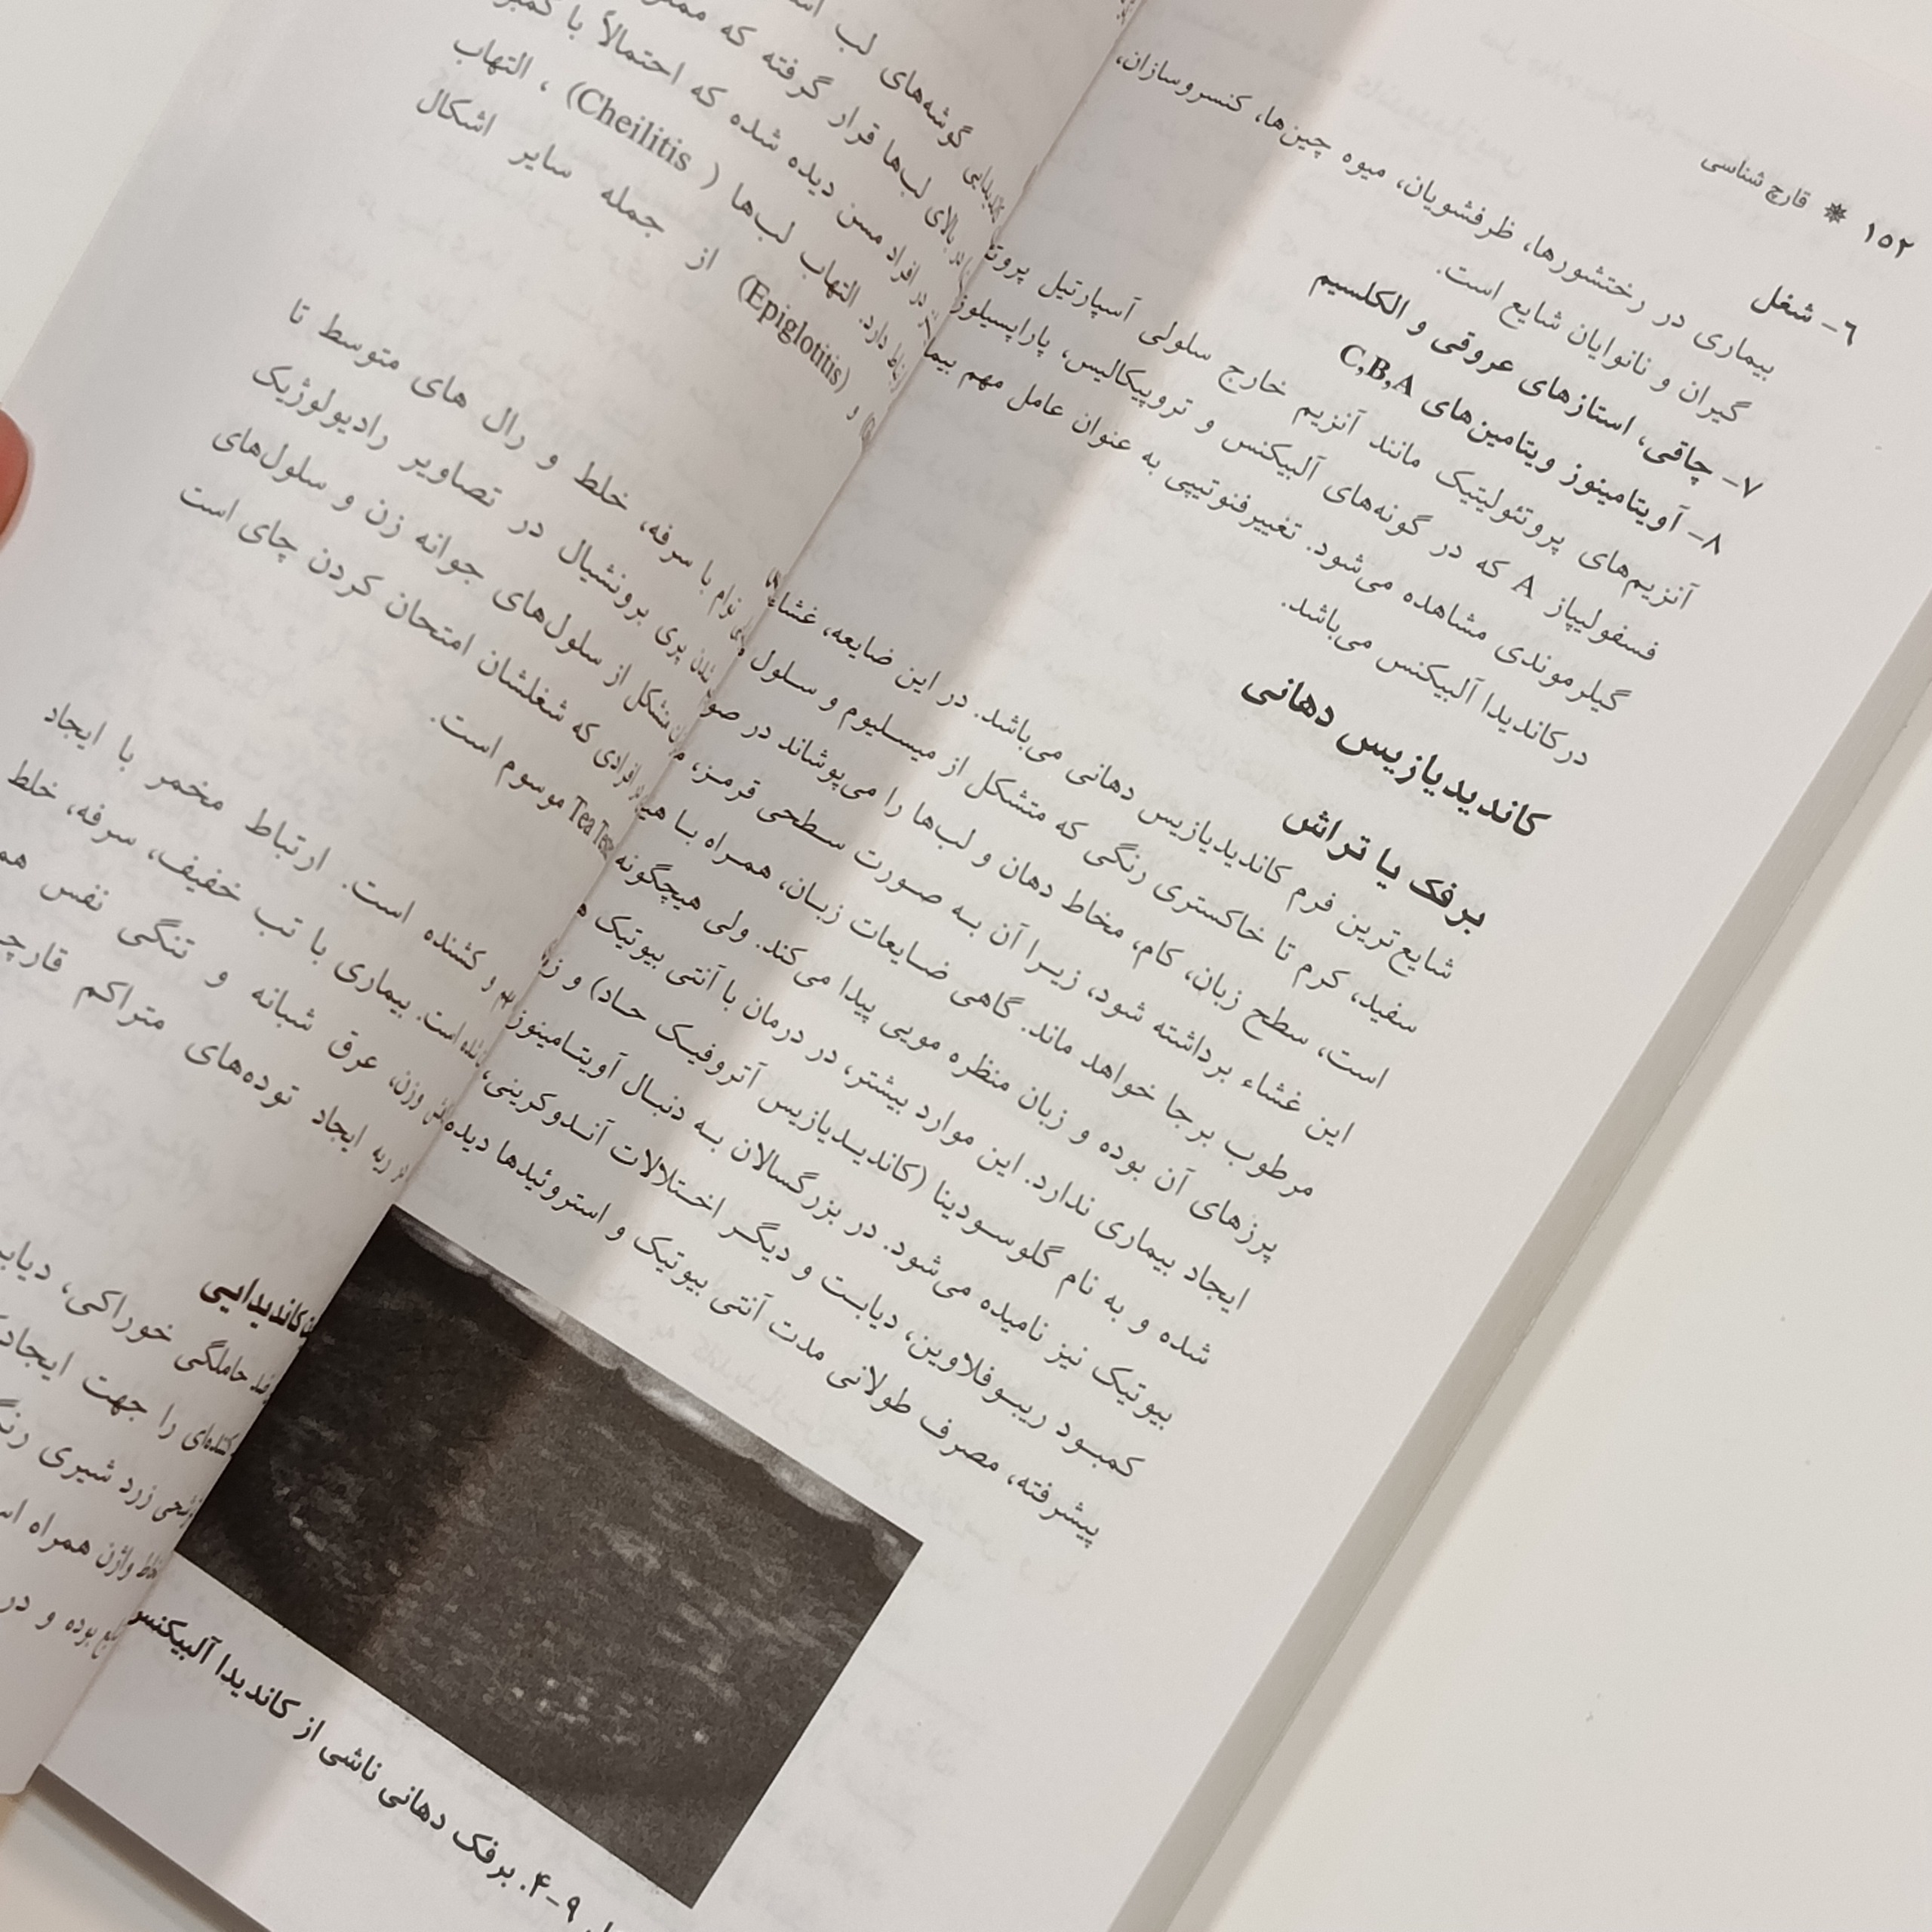 ۱۵۲ * قارچ شناسی
۶- شغل
بیماری در رختشورها، ظرفشویان، میوه چین‌ها، کنسروسازان،
گیران و نانوایان شایع است.
۷- چاقی، استازهای عروقی و الکلسیم
۸- آویتامینوز ویتامین‌های C,B,A
آنزیم‌های پروتئولیتیک مانند آنزیم خارج سلولی آسپارتیل
فسفولیپاز A که در گونه‌های آلبیکنس و تروپیکالیس، پاراپسیلوز
گیلرموندی مشاهده می‌شود. تغییرفنوتیپی به عنوان عامل مهم
درکاندیدا آلبیکنس می‌باشد.
کاندیدیازیس دهانی
برفک یا تراش
شایع‌ترین فرم کاندیدیازیس دهانی می‌باشد. در این ضایعه، غشاء
سفید، کرم تا خاکستری رنگی که متشکل از میسلیوم و سلول
است، سطح زبان، کام، مخاط دهان و لب‌ها را می‌پوشاند در
این غشاء برداشته شود، زیرا آن به صورت سطحی قرمز،
مرطوب برجا خواهد ماند. گاهی ضایعات زبان، همراه با
پرزهای آن بوده و زبان منظره مویی پیدا می‌کند. ولی هیچگونه
ایجاد بیماری ندارد. این موارد بیشتر، در درمان با آنتی بیوتیک
شده و به نام گلوسودینا (کاندیدیازیس آتروفیک حاد) و
بیوتیک نیز نامیده می‌شود. در بزرگسالان به دنبال آویتامینوز
کمبود ریبوفلاوین، دیابت و دیگر اختلالات آندوکرینی،
پیشرفته، مصرف طولانی مدت آنتی بیوتیک و استروئیدها دیده
۹-۴. برفک دهانی ناشی از کاندیدا آلبیکنس
گوشه‌های لب
بالای لب‌ها قرار گرفته که
در افراد مسن دیده شده که احتمالاً با
دارد. التهاب لب‌ها (Cheilitis) ، التهاب
و (Epiglotitis) از جمله سایر اشکال
توام با سرفه، خلط و رال های متوسط تا
پری برونشیال در تصاویر رادیولوژیک
متشکل از سلول‌های جوانه زن و سلول‌های
افرادی که شغلشان امتحان کردن چای است
موسوم است.
و کشنده است. ارتباط مخمر با ایجاد
است. بیماری با تب خفیف، سرفه، خلط
وزن، عرق شبانه و تنگی نفس
ریه ایجاد توده‌های متراکم
کاندیدایی
حاملگی خوراکی،
را جهت
زرد شیری
واژن همراه
بوده و در